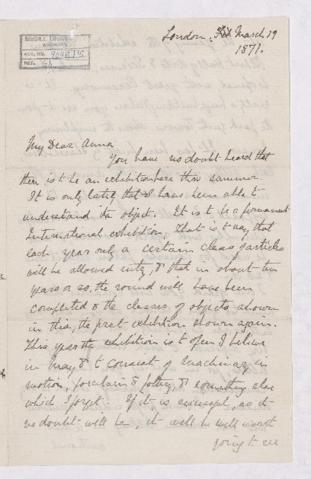 London, March 19
1871.
My Dear Anna
You have no doubt heard that
there is to be an exhibition here this summer.
It is only lately that I have been able to
understand the object. It is to be a permanent
International exhibition, That is to say, that
each year only a certain class of articles
will be allowed entry, & that in about ten
years or so, the round will have been
completed & the classes of objects shown
in this, the first exhibition shown again.
This year the exhibition is to open I believe
in May, & to consist of Machinery in
motion, porcelain & pottery, & something else
which I forget. If it is successful, as it
no doubt will be, it will be well worth
going to see